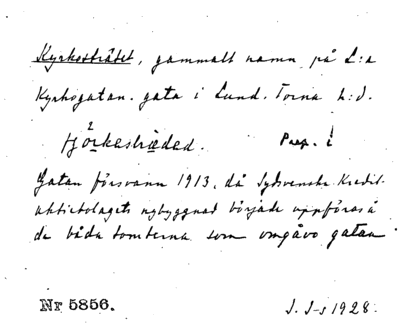 Kyrkesträtet, gammalt namn på L:a
Kyrkogatan. gata i Lund. Torna h:d.
Prep. i
Gatan försvann 1913, då Sydsvenska Kredit-
aktiebolagets nybyggnad började uppföras å
de båda tomterna som omgåvo gatan.
Nr 5856.
J. I-s 1928.